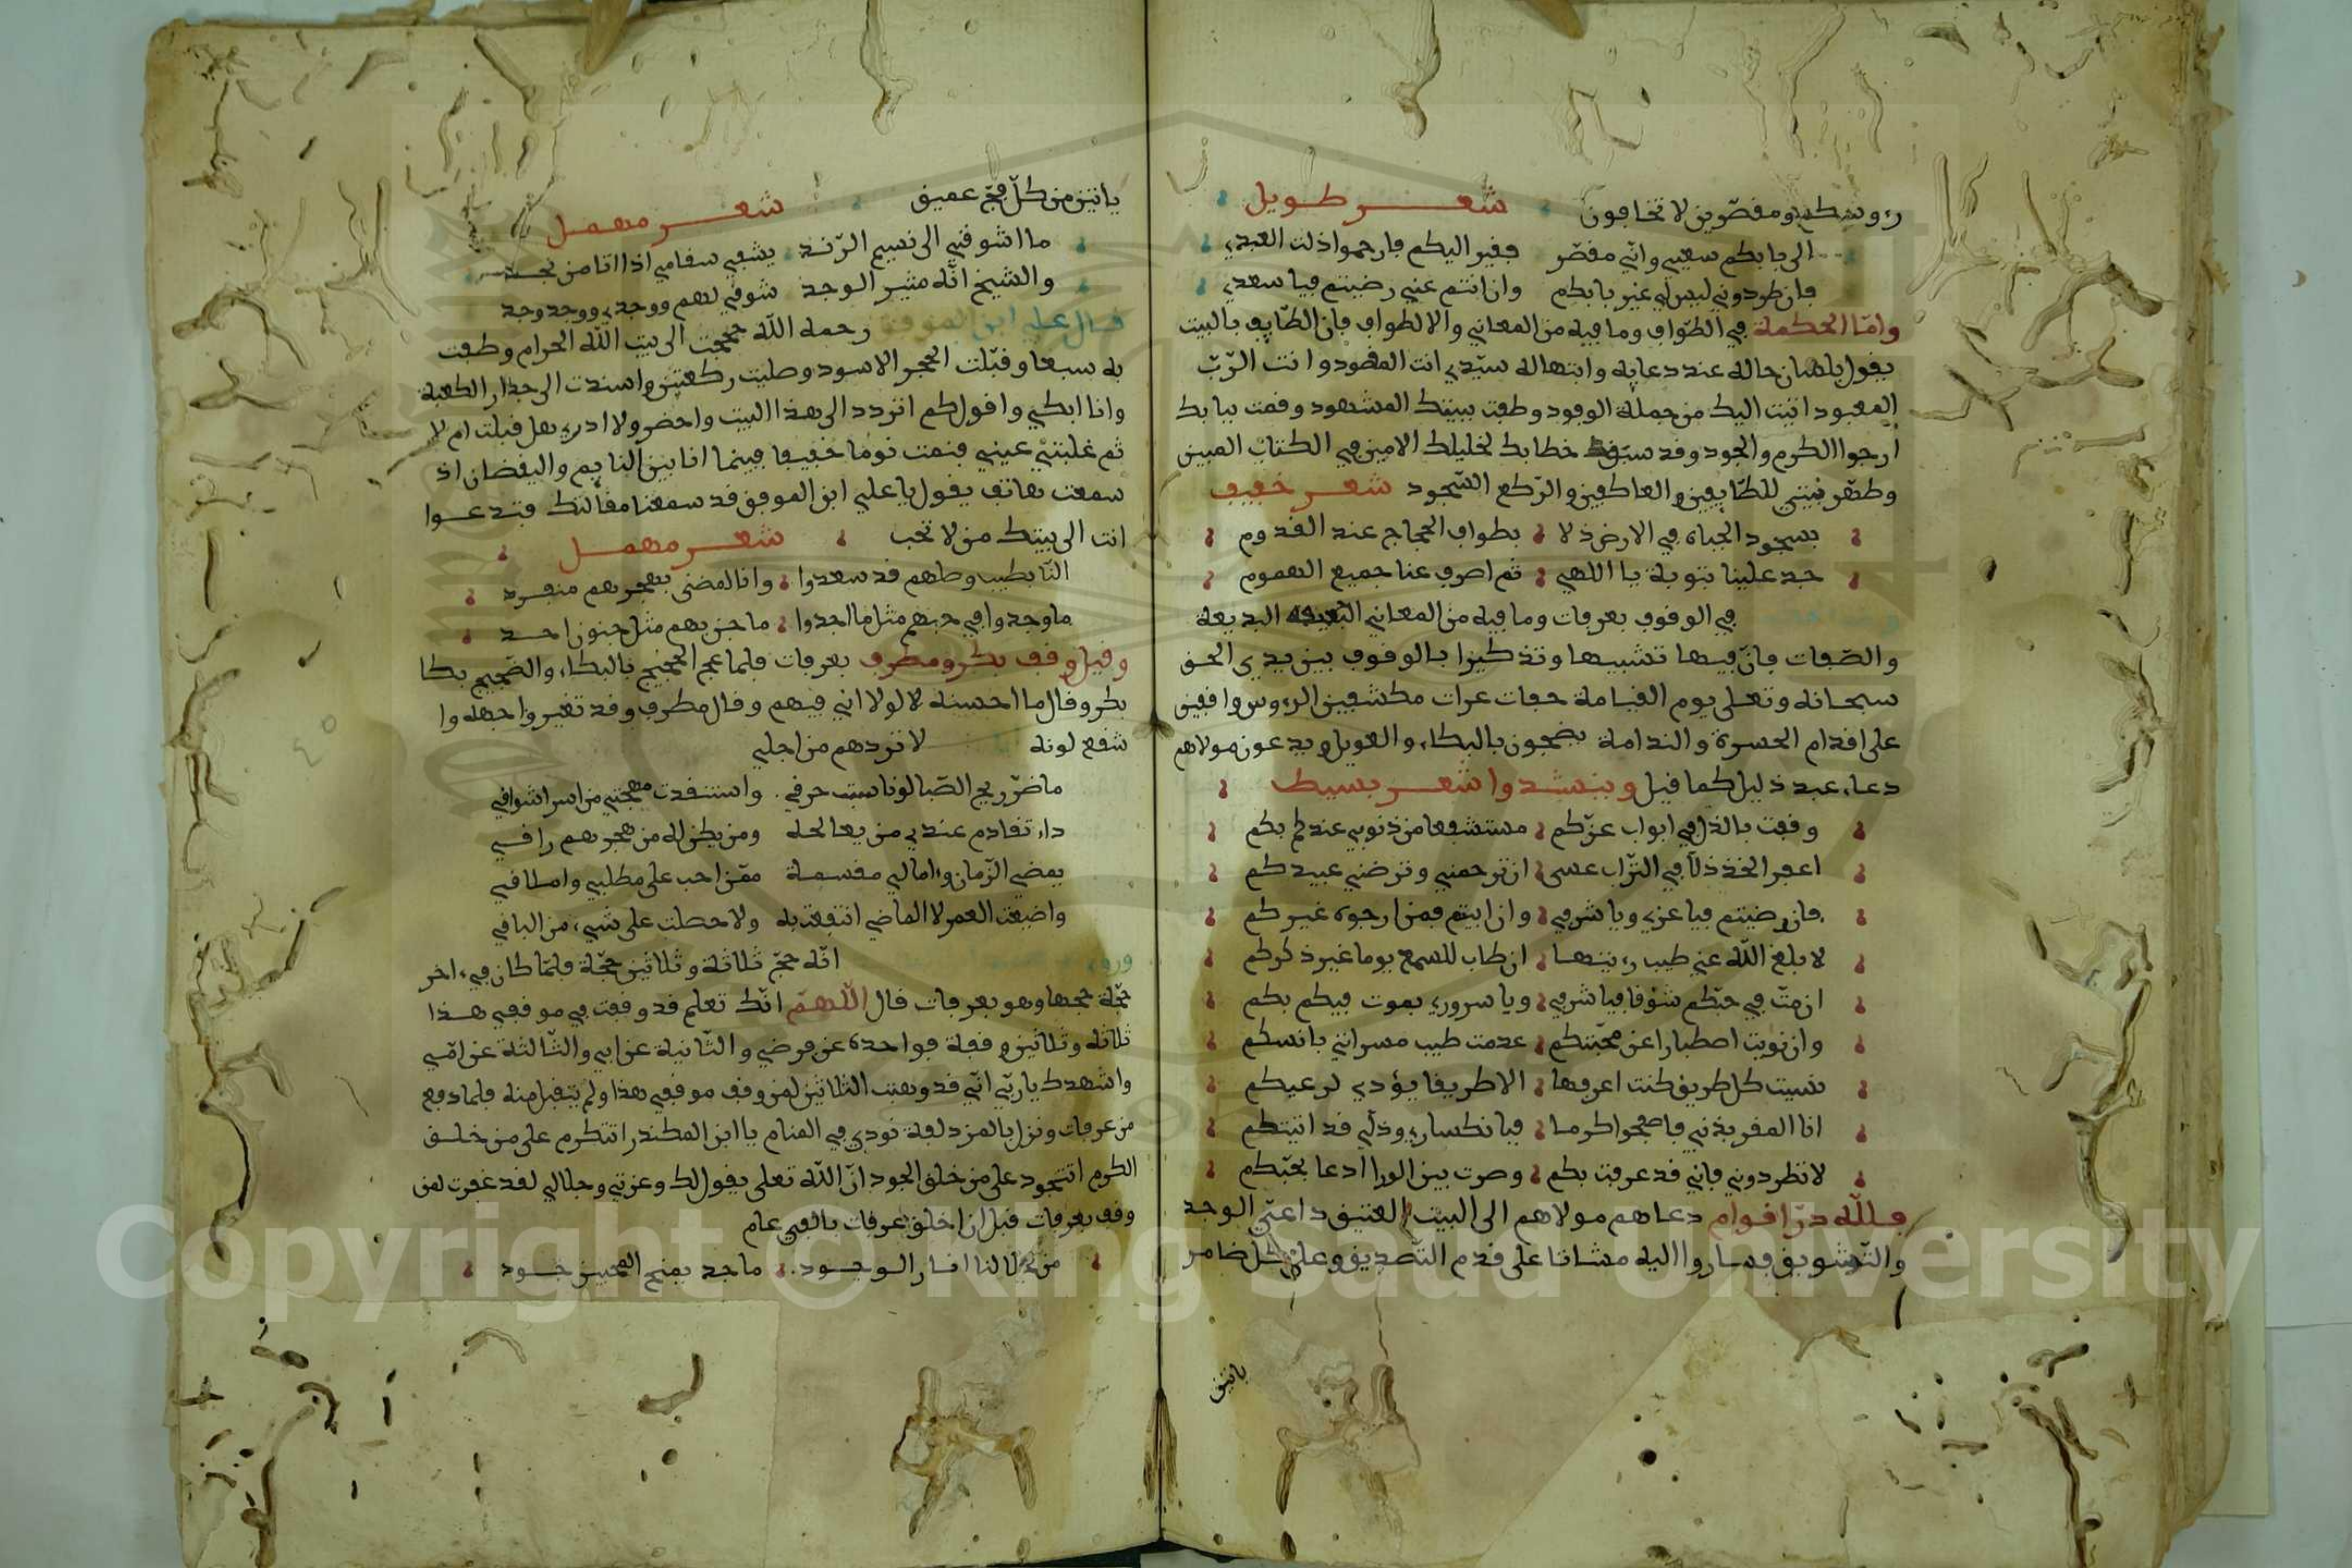 رءوسكم ومقصّرين لا تخافون شعر طويل
الى بابكم سعيي وانّي مقصّر فقير اليكم فارحموا ذلت العبدي
فان طردوني ليس لي غير بابكم وان انتم عني رضيتم فيا سعدي
وامّا الحكمة في الطّواف وما فيه من المعاني والالطواف فان الطّايف بالبيت
يقول بلسان حاله عند دعايه وابتهاله سيّدي انت المقصود وانت الرّبّ
المعبود اتيت اليك من جملة الوفود وطفت ببيتك المشهود وقمت ببابك
ارجوا الكرم والجود وقد سبق خطابك لخليلك الامين في الكتاب المبين
وطهّر بيتي للطّايفين والعاكفين والرّكع السّجود شعر خفيف
بسجود الجباه في الارض ذلا بطواف الحجاج عند القدوم
جد علينا بتوبة يا اللهي ثم اصرف عنا جميع الهموم
في الوقوف بعرفات وما فيه من المعاني البديعة
والصّفات فانّ فيها تشبيها وتذكيرا بالوقوف بين يدي الحق
سبحانه وتعلى يوم القيامة حفات عرات مكشفين الرءوس واقفين
على اقدام الحسرة والندامة يضجون بالبكاء والعويل ويدعون مولاهم
دعاء عبد ذليل كما قيل وينشدوا شعر بسيط
وقفت بالذل في ابواب عزّكم مستشفعا من ذنوبي عندكم بكم
اعفر الخد ذلّا في التراب عسى ان ترحمني وترضني عبيدكم
فان رضيتم فيا عزي ويا شرفي وان ابيتم فمن ارجوه غيركم
لا بلغ الله عني طيب رءيتها ان طاب للسمع يوما غير ذكركم
ان متّ في حبّكم شوقا فيا شرفي ويا سروري بموت فيكم بكم
وان نويت اصطبارا عن محبّتكم عدمت طيب مسراتي بانسكم
نسيت كل طريق كنت اعرفها الا طريقا يؤدي لرعيكم
انا المقر بذنبي فاصفحوا كرما فبانكساري وذلّي قد اتيتكم
لا تطردوني فاني قد عرفت بكم وصرت بين الورا ادعا بحبّكم
فللّه درّ اقوام دعاهم مولاهم الى البيت العتيق داعي الوجد
والتّشويق فساروا اليه مشاتا على قدم التّصديق وعلى كل ضامر
ياتين
ياتين من كلّ فجّ عميق شعر مهمل
ما اشوقني الى نسيم الرّند يشفي سقامي اذا اتا من نجد
والشيخ انّه مثير الوجد شوقي لهم ووجدي ووجد وجد
قال علي ابن الموفق رحمه الله حججت الى بيت الله الحرام وطفت
به سبعا وقبّلت الحجر الاسود وصليت ركعتين واسندت الى جدار الكعبة
وانا ابكي واقول كم اتردد الى هذا البيت واحضر ولا ادري هل قبلت ام لا
ثم غلبتني عيني فنمت نوما خفيفا فبينما انا بين النايم واليقضان اذ
سمعت هاتف يقول يا علي ابن الموفق قد سمعنا مقالتك فتدعوا
انت الى بيتك من لا تحب شعر مهمل
وصلهم قد سعدوا وانا المضنى بهجرهم منفرد
ما وجدوا في حبهم مثل ما اجدوا ما جن بهم مثل جنون احد
وقيل وقف بكر ومطرف بعرفات فلما عج الحجيج بالبكاء والضجيج بكا
بكر وقال ما احسنه لا لولا اني فيهم وقال مطرف وقد تغير واجهه وا
شفع لونه لا تردهم من اجلي
ما ضرّ ريح الصّبا لو ناسمت حرقي واستنقذت مهجتي من اسر اشواقي
داء تقادم عندي من يعالجه ومن يكن له من هجرهم راقي
يمضي الزّمان وءامالي مقسمة ممّن احب على مطلبي واملاقي
واضيعت العمر لا الماضي انتفعت به ولا حصلت على شيء من الباقي
وروي انّه حجّ ثلاثة وثلاثين حجّة فلمّا كان في ءاخر
حجّة حجها وهو بعرفات قال اللّهمّ انّك تعلم قد وقفت في موقفي هذا
ثلاثه وثلاثين وقفة فواحدة عن فرضي والثّانية عن ابي والثّالثة عن امّي
واشهدك يا ربّي انّي قد وهبت الثلاثين لمن وقف موقفي هذا ولم يتقبل منه فلما دفع
من عرفات ونزل بالمزدلفة نودي في المنام يا ابن المكندر اتتكرم على من خلق
الكرم اتتجود على من خلق الجود انّ الله تعلى يقول لك وعزتي وجلالي لقد غفرت لمن
وقف بعرفات قبل ان اخلق عرفات بالفي عام
لنا الوجود ماجد يمنح جود
Copyright © King Saud University